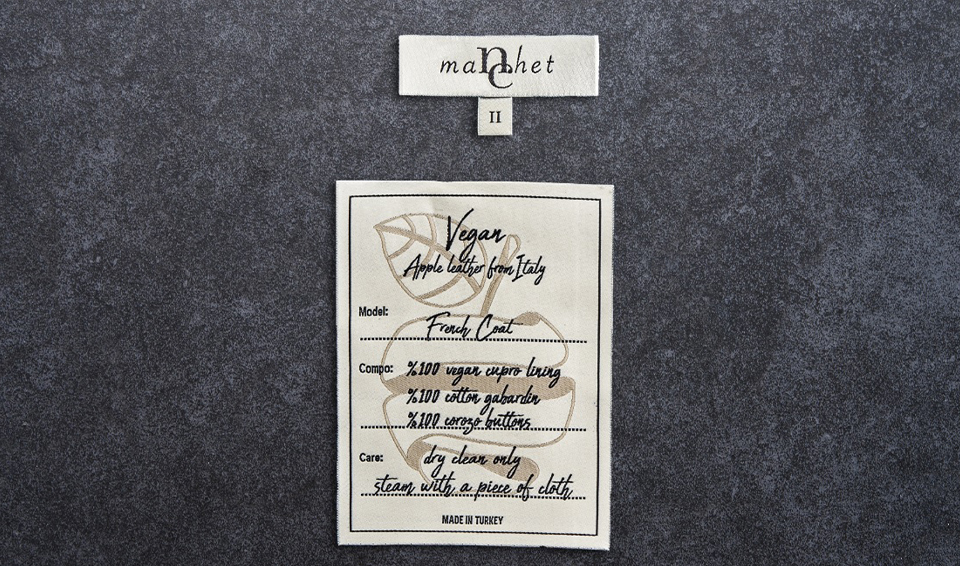 manchet
II
Vegan
Apple leather from Italy
Model:
French Coat
Compo: %100 vegan cupro lining
%100 cotton gabardin
%100 corozo buttons
Care: dry clean only
steam with a piece of cloth
MADE IN TURKEY